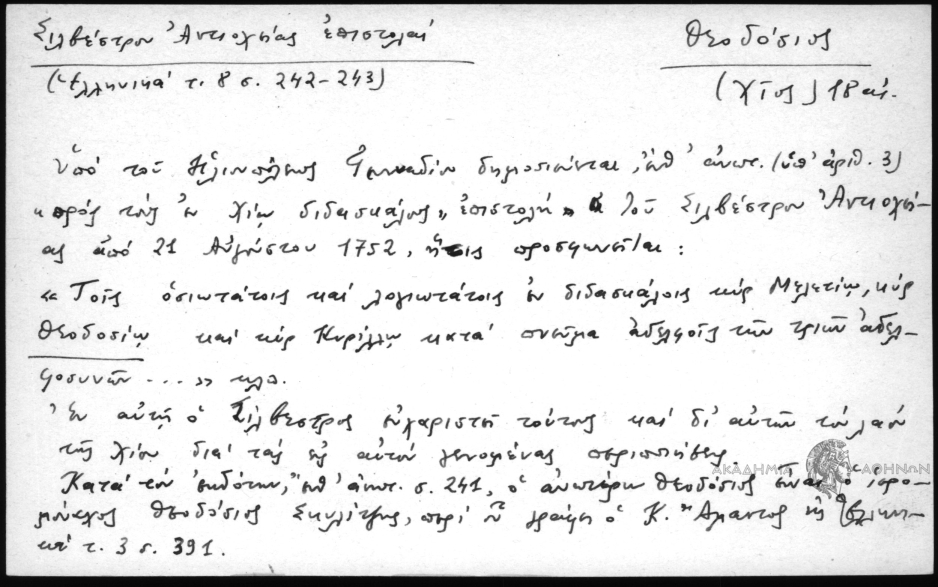 Σιλβέστρου Ἀντιοχείας ἐπιστολαί
(Ἑλληνικά τ. 8 σ. 242-243)
Θεοδόσιος
(Χῖος) 18 αἰ.
Ὑπό τοῦ Ἡλιουπόλεως Γενναδίου δημοσιεύεται, ἐνθ' ἀνωτ. (ὑπ' ἀριθ. 3)
"πρός τούς ἐν Χίῳ διδασκάλους" ἐπιστολή τοῦ Σιλβέστρου Ἀντιοχεί-
ας ἀπό 21 Αὐγούστου 1752, ἥτις προσφωνεῖται:
«Τοῖς ὁσιωτάτοις καί λογιωτάτοις ἐν διδασκάλοις κύρ Μελετίῳ, κύρ
Θεοδοσίῳ καί κύρ Κυρίλλῳ κατά πνεῦμα ἀδελφοῖς τῶν τριῶν ἀδελ-
φοσυνῶν ...» κλπ.
Ἐν αὐτῇ ὁ Σίλβεστρος εὐχαριστεῖ τούτους καί δι' αὐτῶν τόν λαόν
τῆς Χίου διά τάς εἰς αὐτόν γενομένας περιποιήσεις.
ΑΚΑΔΗΜΙΑ ΑΘΗΝΩΝ
Κατά τόν ἐκδότην, ἐνθ' ἀνωτ. σ. 241, ὁ ἀνωτέρω Θεοδόσιος εἶναι ὁ ἱερο-
μόναχος Θεοδόσιος Σκυλίτζης, περί οὗ γράφει ὁ Κ. Ἄμαντος εἰς Ἑλληνι-
κά τ. 3 σ. 391.